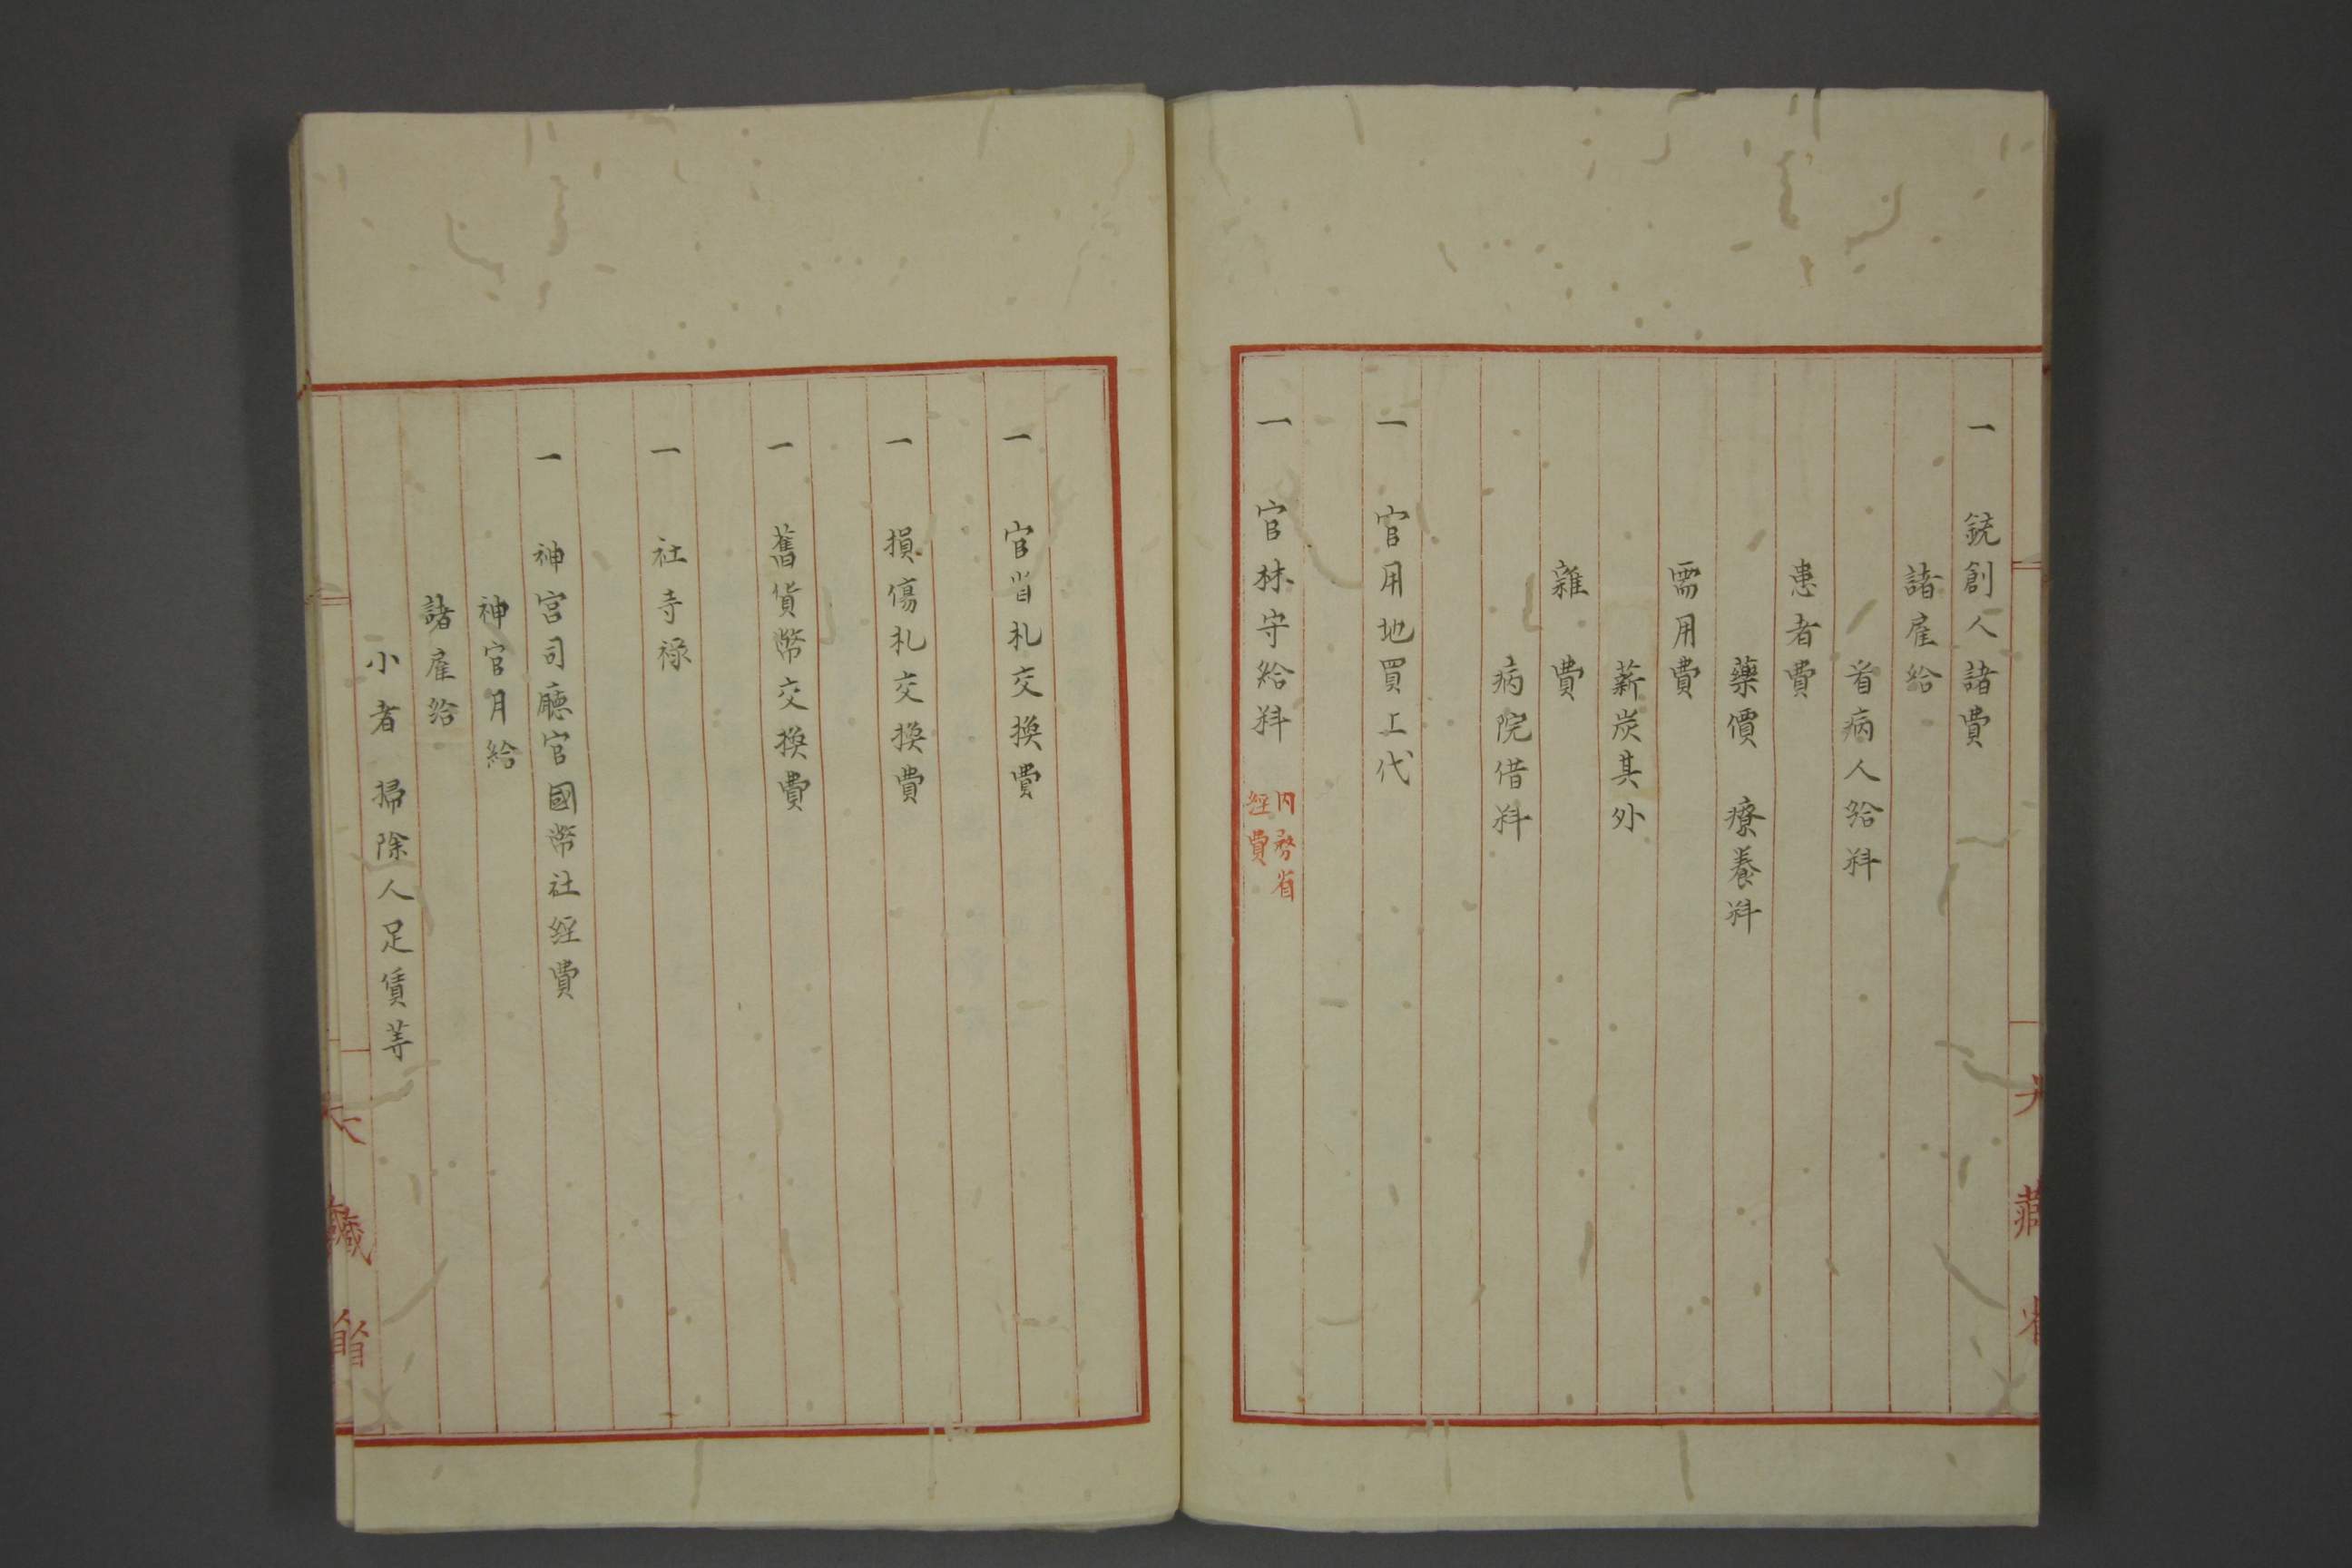 一 銃創人諸費
諸雇給
看病人給料
患者費
藥價 療養料
需用費
薪炭其外
雜費
病院借料
一 官用地買上代
一 官林守給料
内務省
經費
一 官省札交換費
一 損傷札交換費
一 舊貨幣交換費
一 社寺祿
一 神宮司廳官國幣社經費
神官月給
諸雇給
小者 掃除人足賃等
大藏省